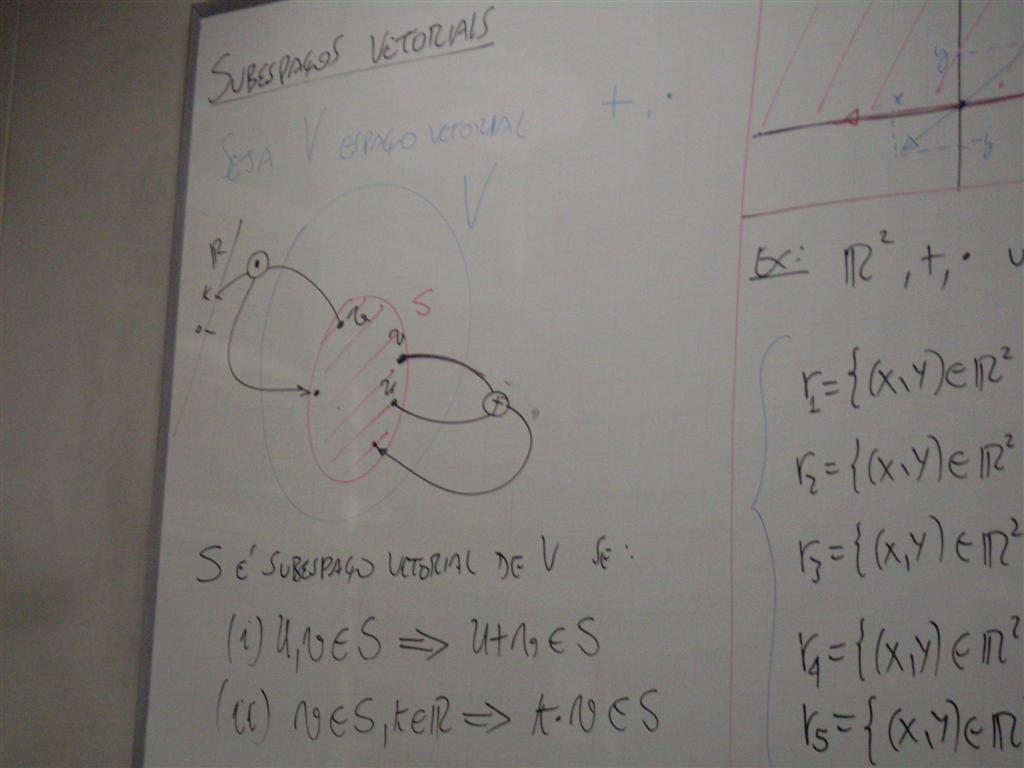 SUBESPAÇOS VETORIAIS
SEJA V ESPAÇO VETORIAL +, ·
V
R
k
S
v
v
u
+
S É SUBESPAÇO VETORIAL DE V SE:
(i) u, v ∈ S ⟹ u + v ∈ S
(ii) v ∈ S, k ∈ R ⟹ k · v ∈ S
y
x
-y
Ex: R², +, ·
r₁ = {(x, y) ∈ R²
r₂ = {(x, y) ∈ R²
r₃ = {(x, y) ∈ R²
r₄ = {(x, y) ∈ R²
r₅ = {(x, y) ∈ R